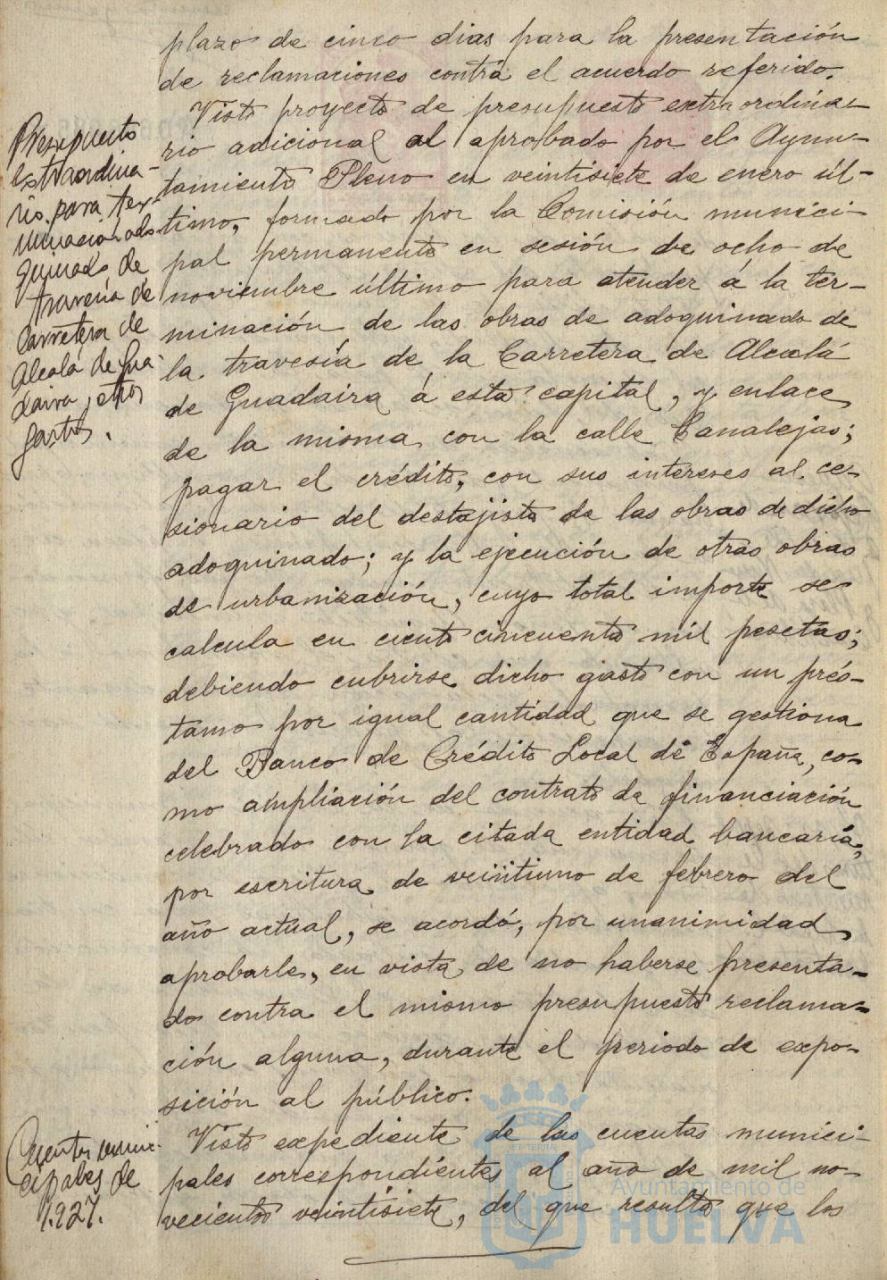 plazo de cinco dias para la presentación
de reclamaciones contra el acuerdo referido.
Presupuesto
extraordina-
rio para ter-
minación ado
quinado de
travesía de
Carretera de
Alcalá de Gua-
daira y otros
gastos.
Visto proyecto de presupuesto extraordina-
rio adicional al aprobado por el Ayun-
tamiento Pleno en veintisiete de enero úl-
timo, formado por la Comisión munici-
pal permanente en sesión de ocho de
noviembre último para atender á la ter-
minación de las obras de adoquinado de
la travesía de la Carretera de Alcalá
de Guadaira á esta capital, y enlace
de la misma con la calle Canalejas;
pagar el crédito, con sus intereses al ce-
sionario del destajista de las obras de dicho
adoquinado; y la ejecución de otras obras
de urbanización, cuyo total importe se
calcula en ciento cincuenta mil pesetas;
debiendo cubrirse dicho gasto con un prés-
tamo por igual cantidad que se gestiona
del Banco de Crédito Local de España, co-
mo ampliación del contrato de financiación
celebrado con la citada entidad bancaria,
por escritura de veintiuno de febrero del
año actual, se acordó, por unanimidad,
aprobarle, en vista de no haberse presenta-
do contra el mismo presupuesto reclama-
ción alguna, durante el periodo de expo-
sición al público.
Cuentas muni-
cipales de
1.927.
Visto expediente de las cuentas munici-
pales correspondientes al año de mil no-
vecientos veintisiete, del que resulta que los
Ayuntamiento de
HUELVA